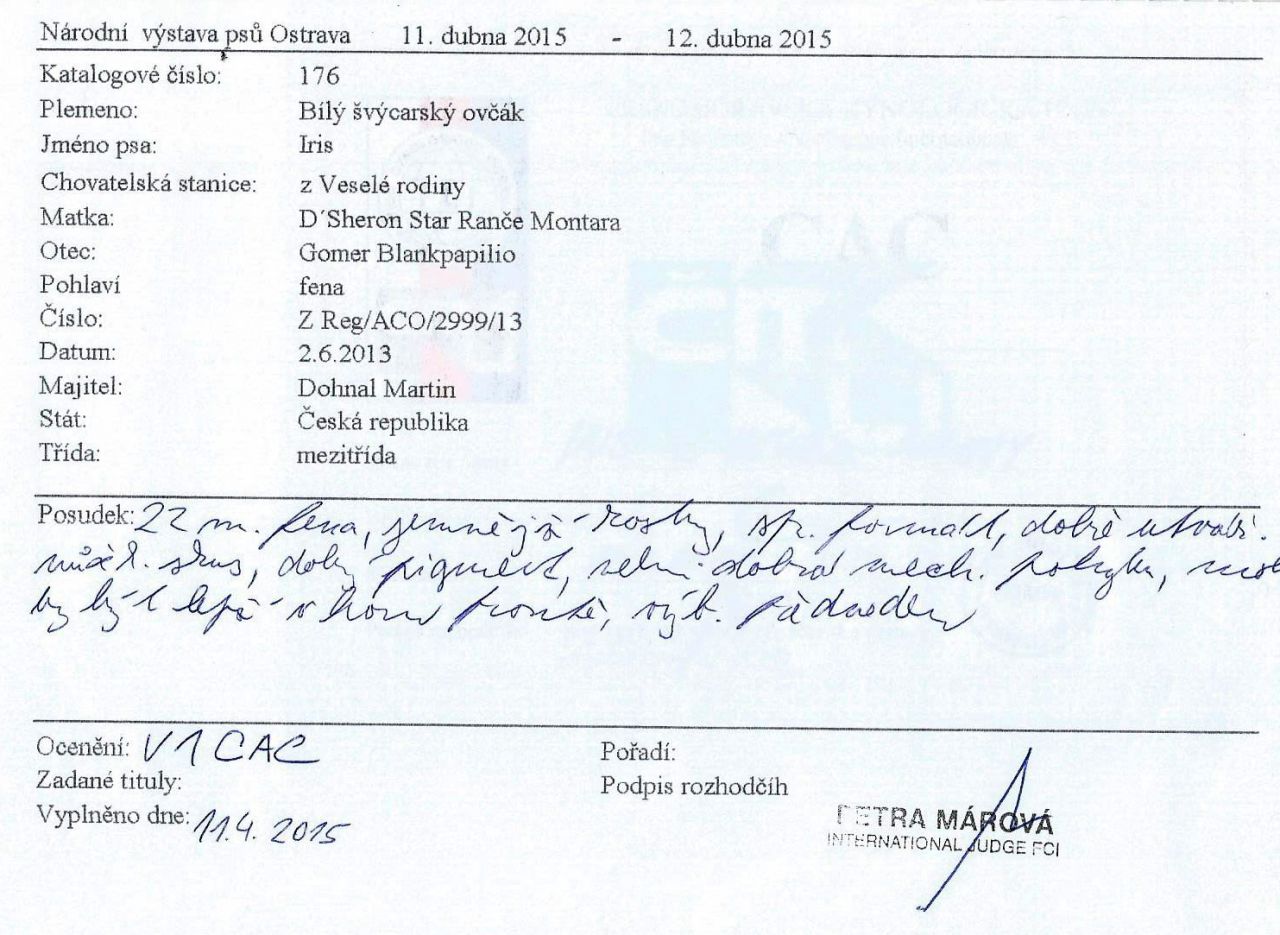 Národní výstava psů Ostrava 11. dubna 2015 - 12. dubna 2015
Katalogové číslo: 176
Plemeno: Bílý švýcarský ovčák
Jméno psa: Iris
Chovatelská stanice: z Veselé rodiny
Matka: D´Sheron Star Ranče Montara
Otec: Gomer Blankpapilio
Pohlaví fena
Číslo: Z Reg/ACO/2999/13
Datum: 2.6.2013
Majitel: Dohnal Martin
Stát: Česká republika
Třída: mezitřída
Posudek: 22 m. fena, jemnější kostry, spr. formátt, dobře utvář.
skus, dobrý pigment, velmi dobrá mech. pohybu,
by být lepší v hrud. frontě, výb. předvedení
Ocenění: V1 CAC Pořadí:
Zadané tituly: Podpis rozhodčíh
Vyplněno dne: 11.4. 2015
PETRA MÁROVÁ
INTERNATIONAL JUDGE FCI
CAC